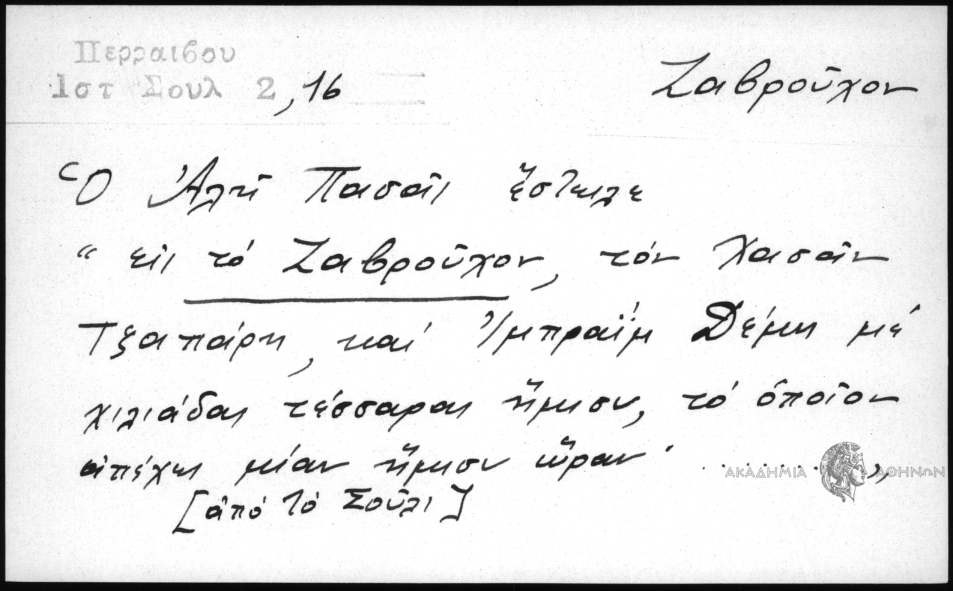 Περραιβου
Ιστ Σουλ 2,16
Ζαβροῦχον
Ὁ Ἀλῆ Πασᾶς ἔστειλε
“ εἰς τό Ζαβροῦχον, τόν Χασάν
Τζαπάρη, καί Ἰμπραΐμ Δέμη μέ
χιλιάδας τέσσαρας ἥμισυ, τό ὁποῖον
ἀπέχει μίαν ἥμισυ ὥραν ........ „
[ἀπό τό Σοῦλι]
ΑΚΑΔΗΜΙΑ ΑΘΗΝΩΝ